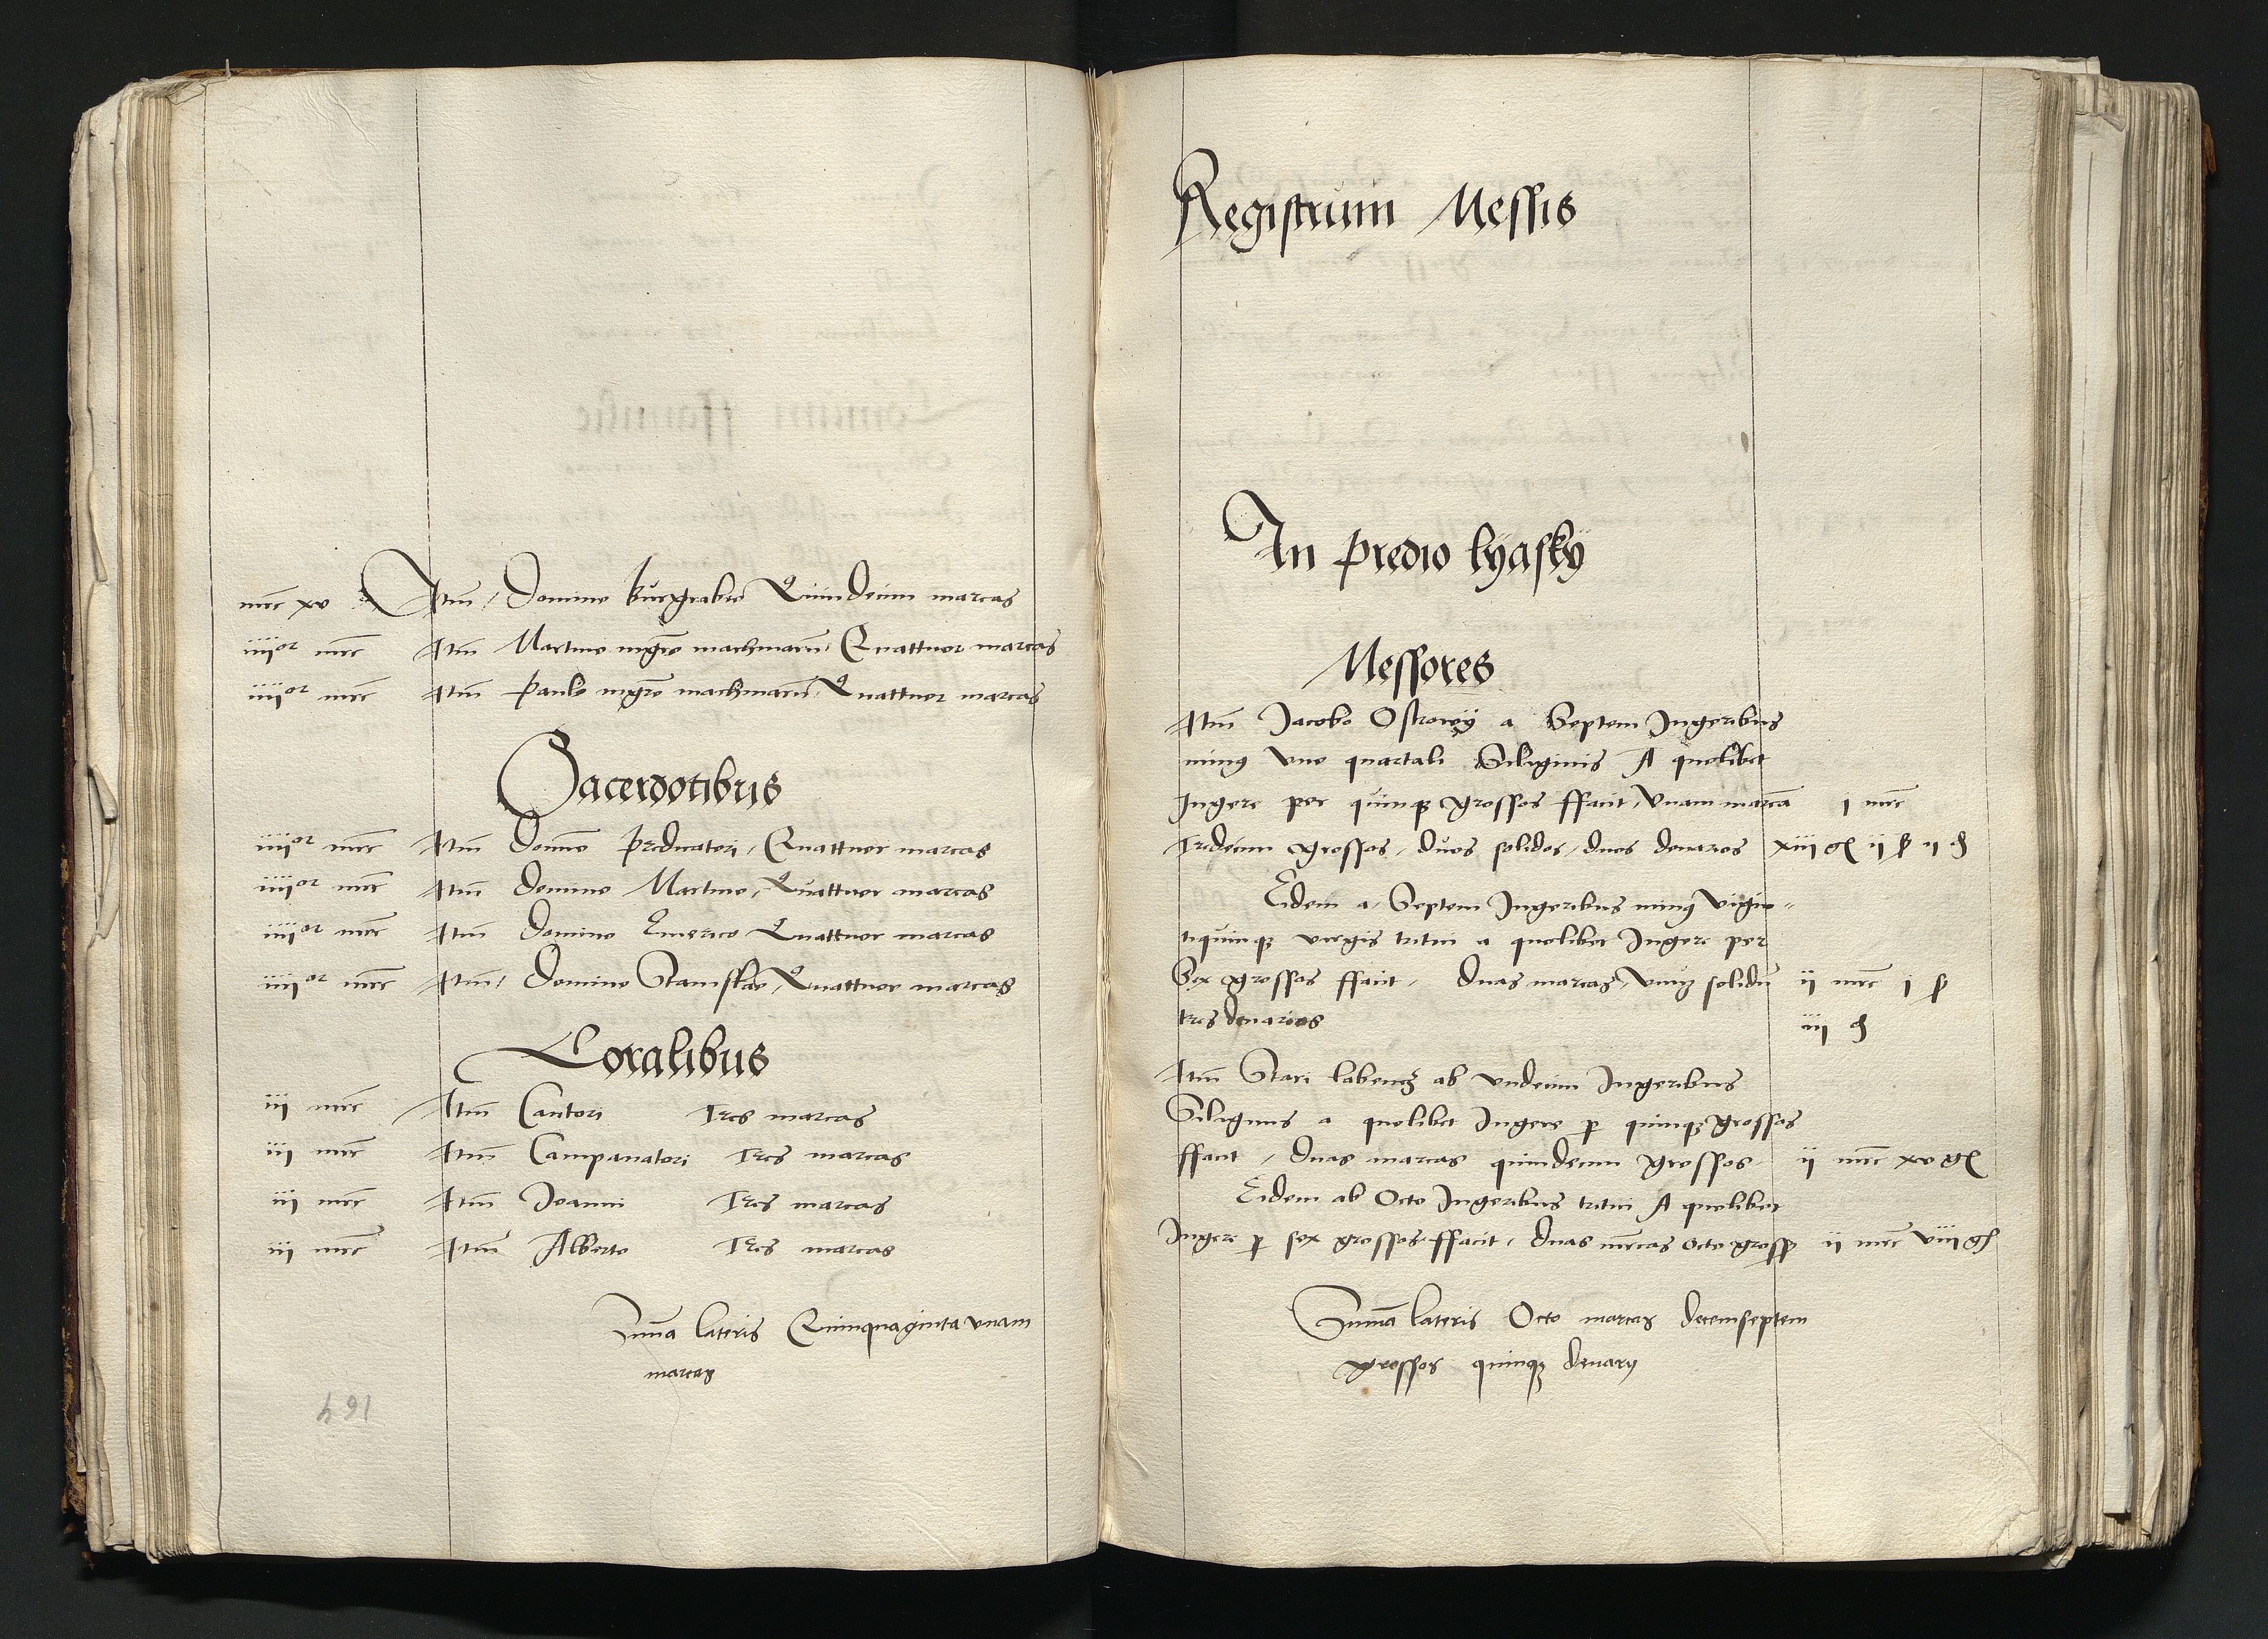 mrc xv Itm Domino burgrabio Quindecim marcas
iiiior mrc Itm Martino mgro machinaru Quattuor marcas
iiiior mrc Itm Paulo mgro machinaru Quattuor marcas
Sacerdotibus
iiiior mrc Itm Domino predicatori Quattuor marcas
iiiior mrc Itm Domino Martino Quattuor marcas
iiiior mrc Itm Domino Emerico Quattuor marcas
iiiior mrc Itm Domino Stanislao Quattuor marcas
Coralibus
iii mrc Itm Cantori Tres marcas
iii mrc Itm Campanatori Tres marcas
iii mrc Itm Joanni Tres marcas
iii mrc Itm Alberto Tres marcas
Suma lateris Quinquaginta unam
marcas
164
Registrum Messis
In predio lyasky
Messores
Itm Jacobo Ostrowy a Septem Jugeribus
minus Uno quartali Siliginis A quolibet
Jugere per quinqz grossos ffacit Unam marca j mrc
Tredecim grossos duos solidos duos denarios xiii gr ii ß ii d
Eidem a Septem Jugeribus minus vigin-
tiquinqz virgis tritici a quolibet Jugere per
Sex grossos ffacit Duas marcas Unuz solidu ii mrc j ß
tres denarios iii d
Itm Stari labencz ab undecim Jugeribus
Siliginis a quolibet Jugere p quinqz grossos
ffacit Duas marcas quindecim grossos ii mrc xv gr
Eidem ab Octo Jugeribus tritici A quolibet
Jugere p sex grossos ffacit Duas mrcas octo gross ii mrc viii gr
Summa lateris Octo marcas decemseptem
grossos quinqz denarij